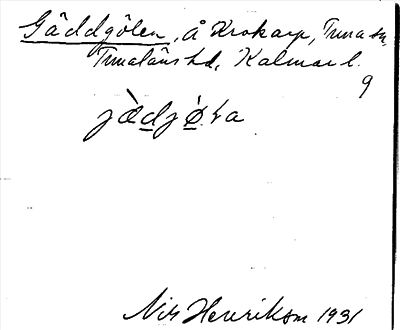 Gäddgölen, å Krokarp, Tuna sn,
Tunaläns hd, Kalmar l.
9
jæ̀djǿla
Nils Henrikson 1931